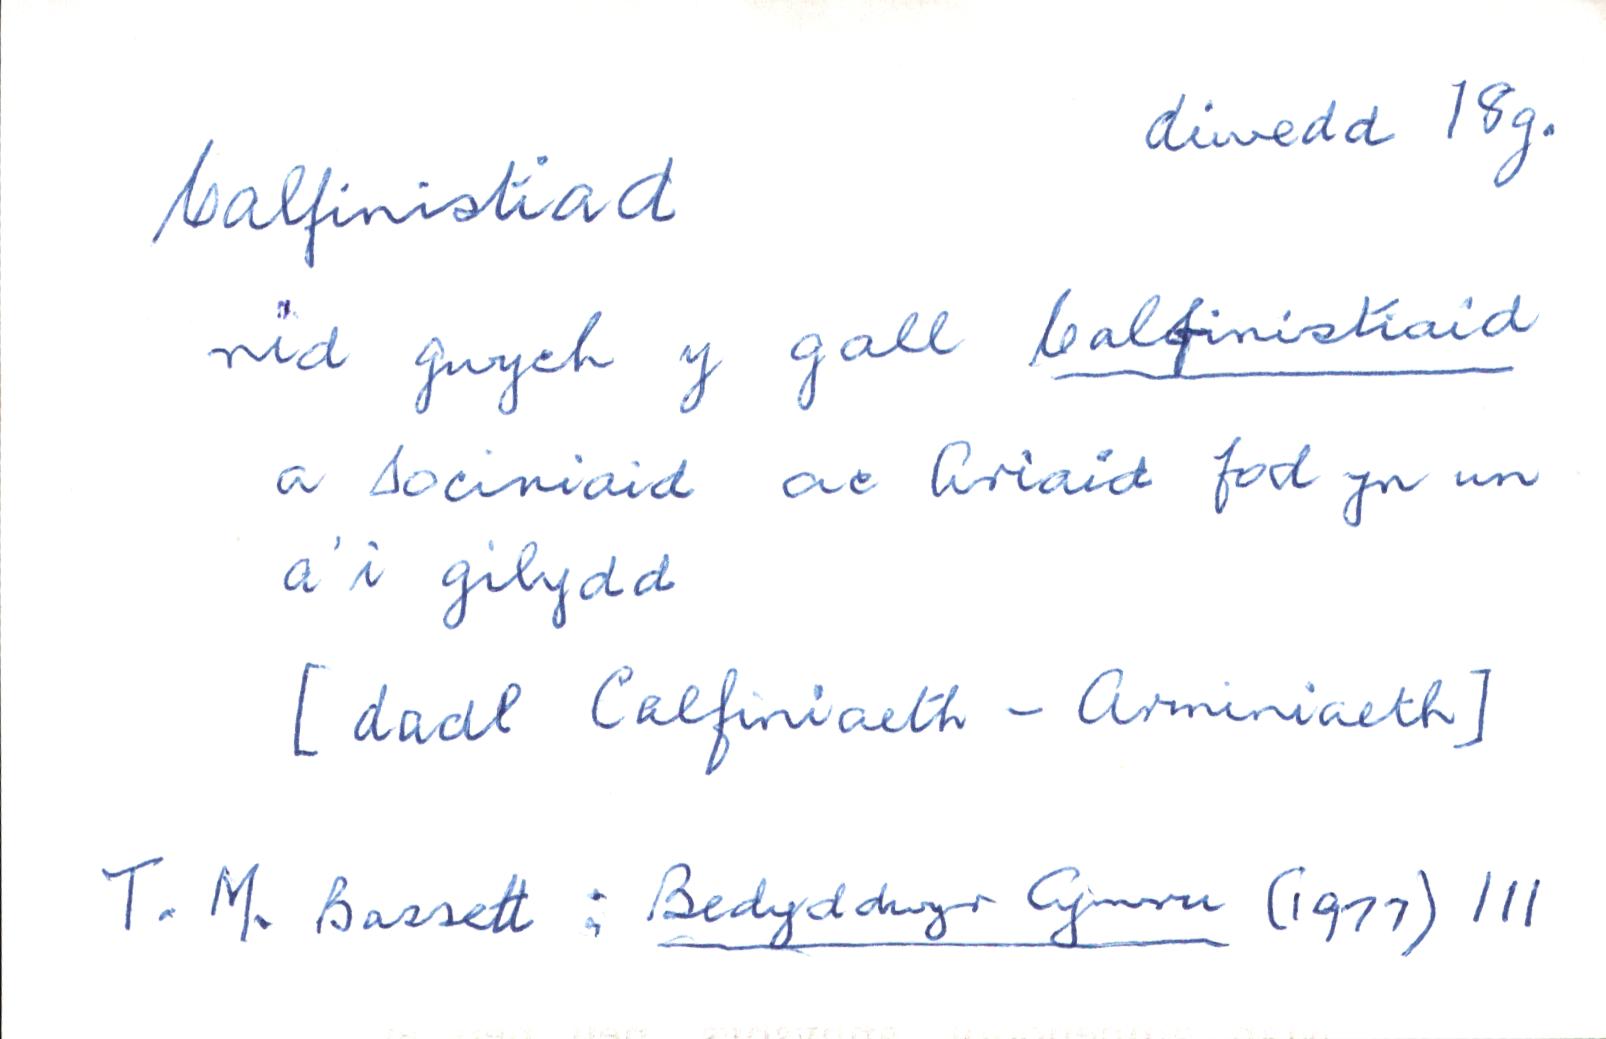 diwedd 18g.
Calfinistiad
nid gwych y gall Calfinistiaid
a Sociniaid ac Ariaid fod yn un
a'i gilydd
[dadl Calfiniaeth - Arminiaeth]
T. M. Bassett : Bedyddwyr Cymru (1977) 111